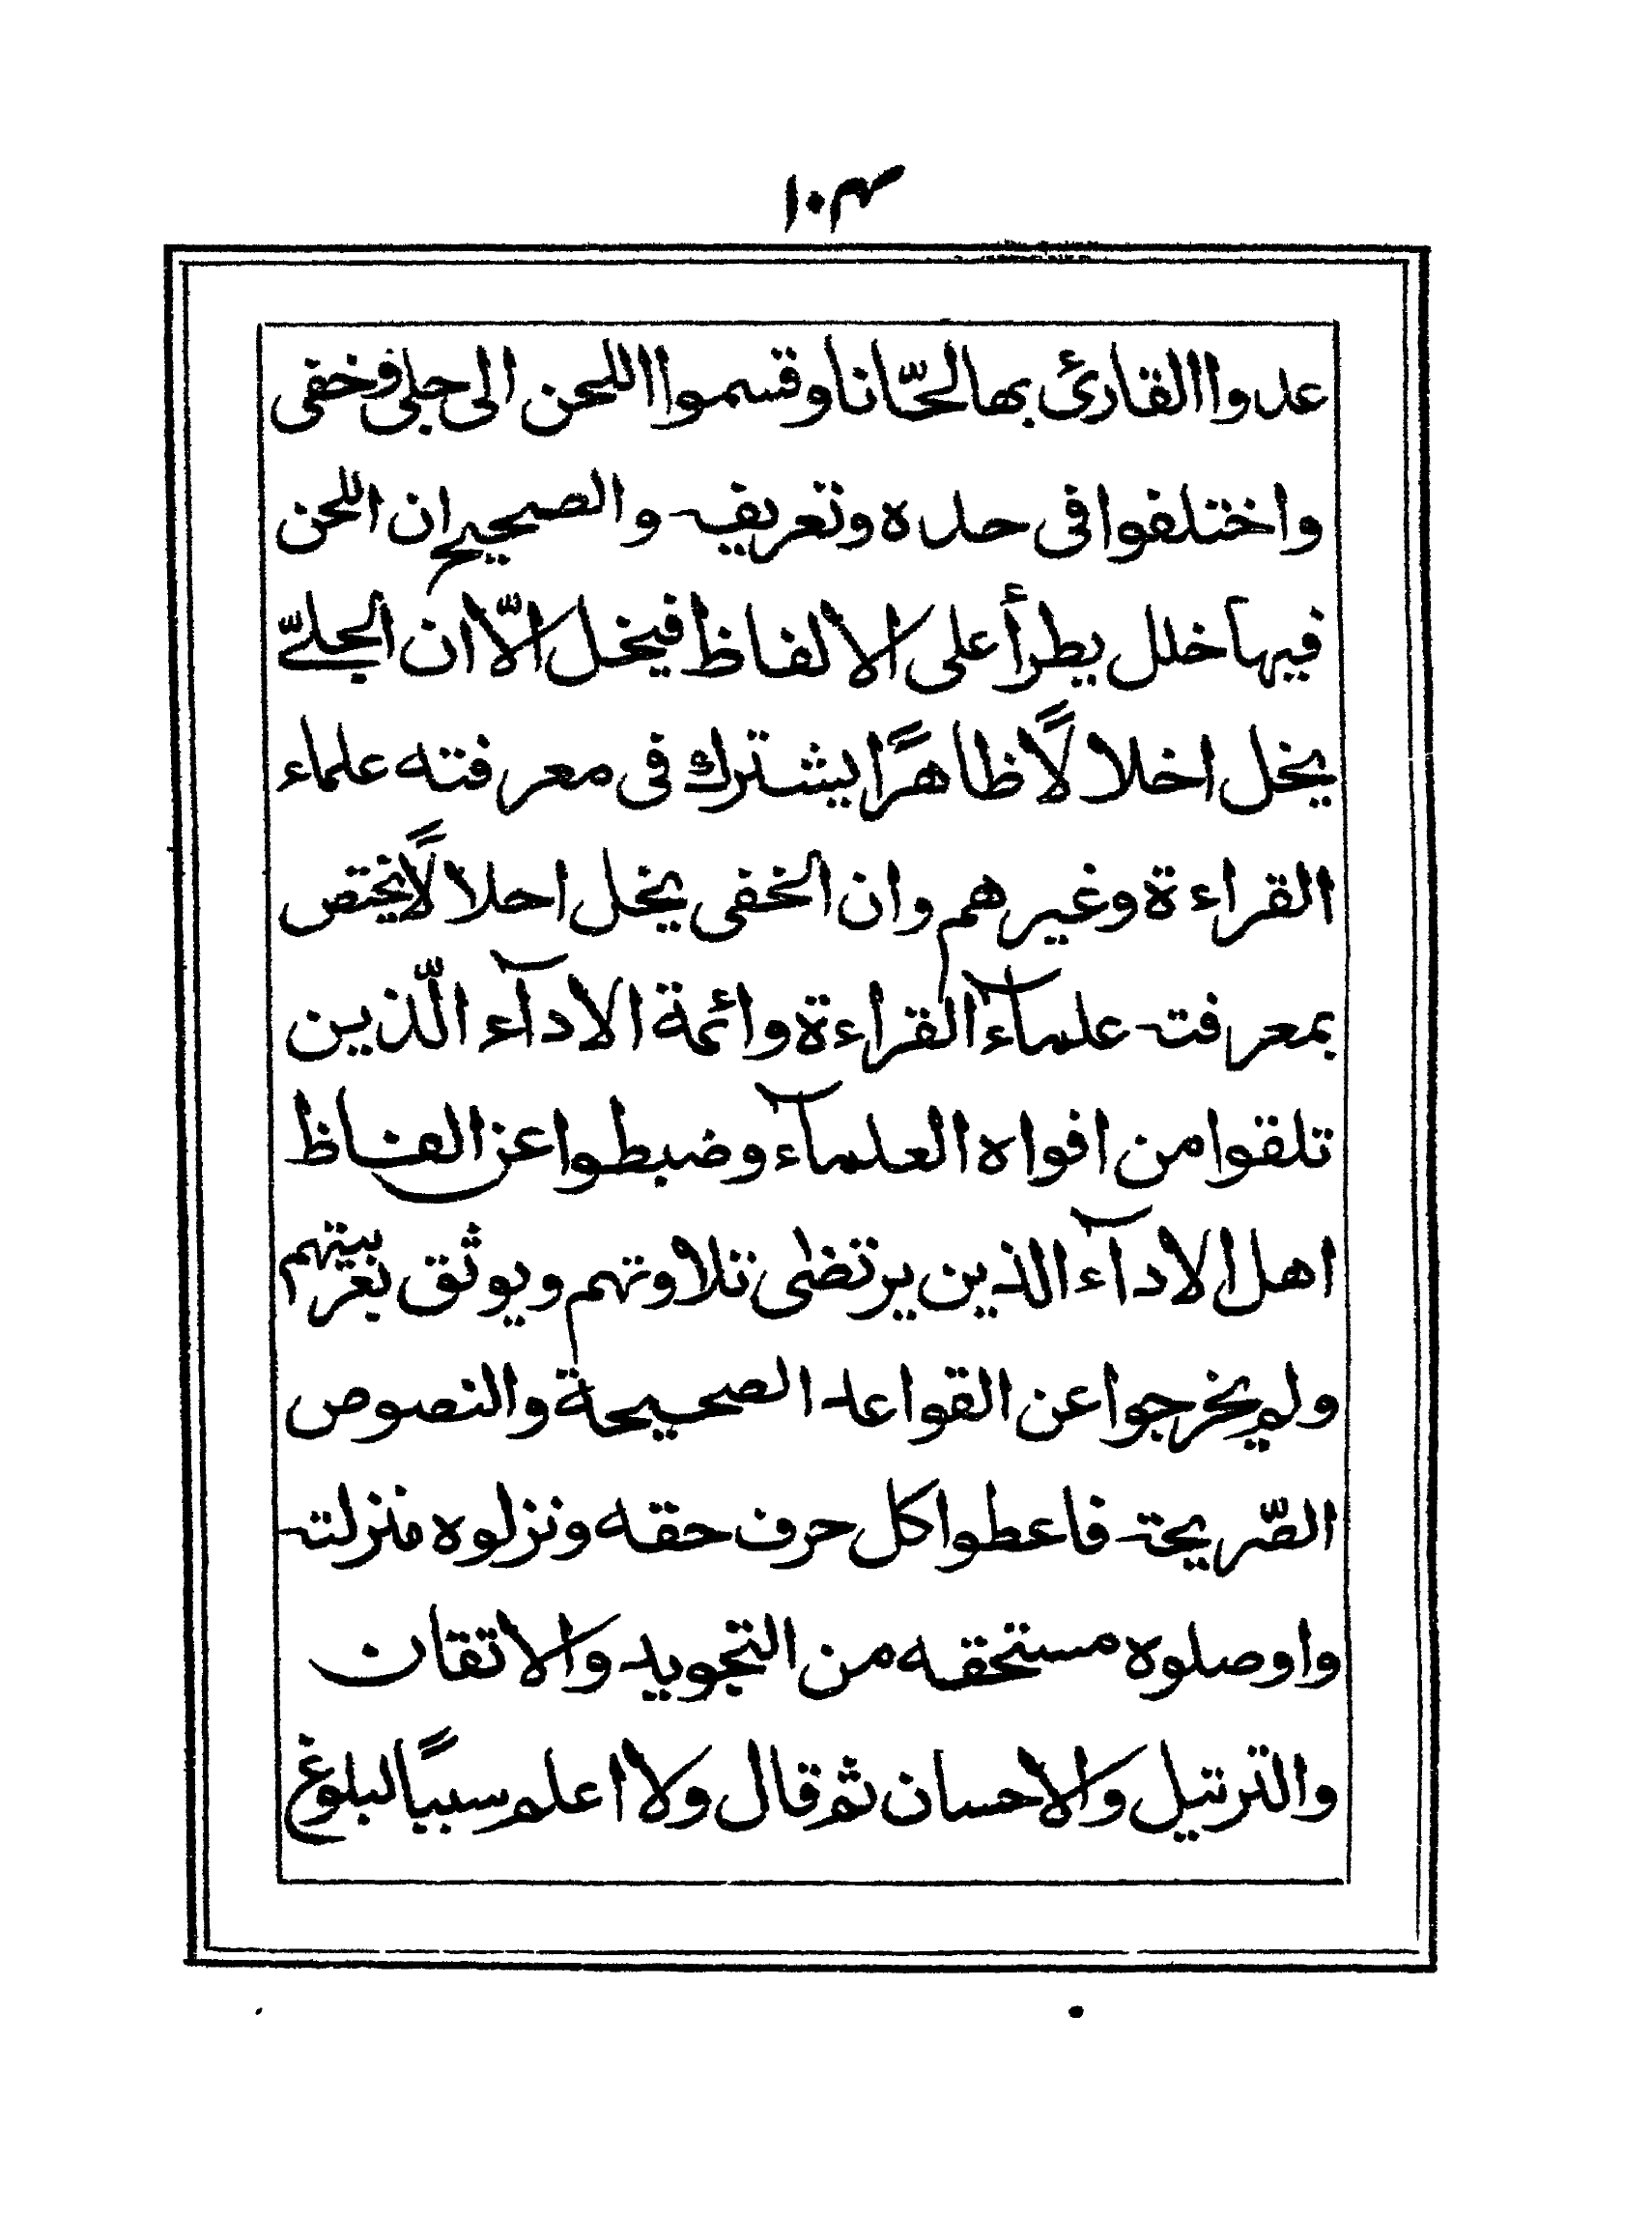 ١٠٣
عدوا القارئ بها لحّانا وقسموا اللحن الى جلي وخفى
واختلفوا فى حده وتعريفه والصحيح ان اللحن
فيها خلل يطرأ على الالفاظ فيخل الّا ان الجليّ
يخل اخلالًا ظاهرًا يشترك فى معرفته علماء
القراءة وغيرهم وان الخفى يخل احلالًا يختص
بمعرفته علمآء القراءة وائمة الادآء الّذين
تلقوا من افواه العلمآء وضبطوا عن الفاظ
اهل الادآء الذين يرتضى تلاوتهم ويوثق بعربيتهم
ولم يخرجوا عن القواعد الصحيحة والنصوص
الصّريحة فاعطوا كل حرف حقه ونزلوه منزلته
واوصلوه مستحقه من التجويد والاتقان
والترتيل والاحسان ثم قال ولا اعلم سببًا لبلوغ